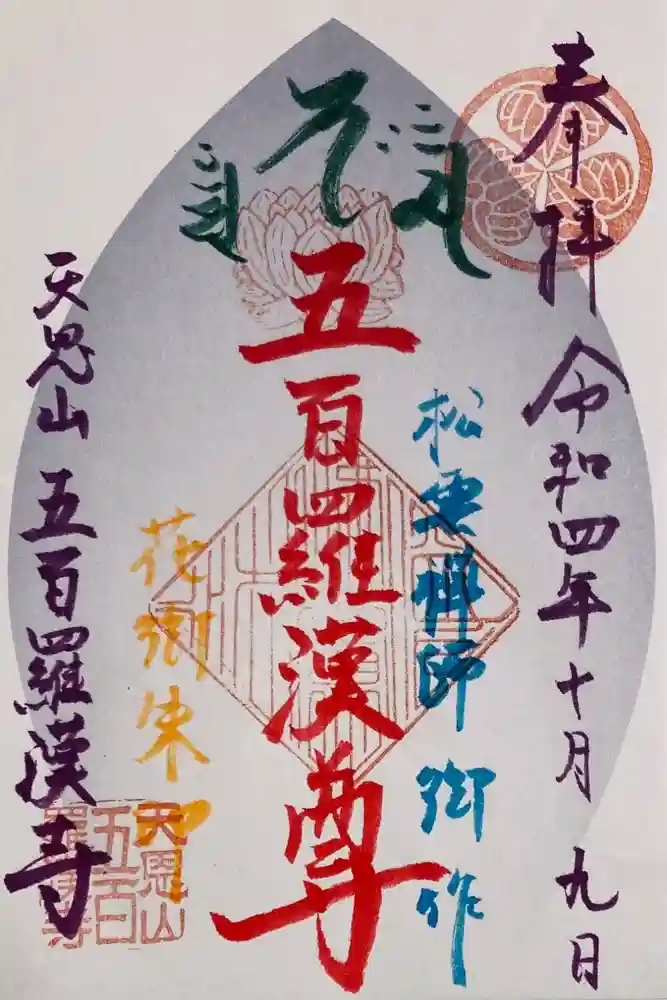 奉拝 令和四年十月九日
松雲禅師御作
五百羅漢尊
花御朱印
天恩山五百羅漢寺
天恩山
五百
羅漢寺